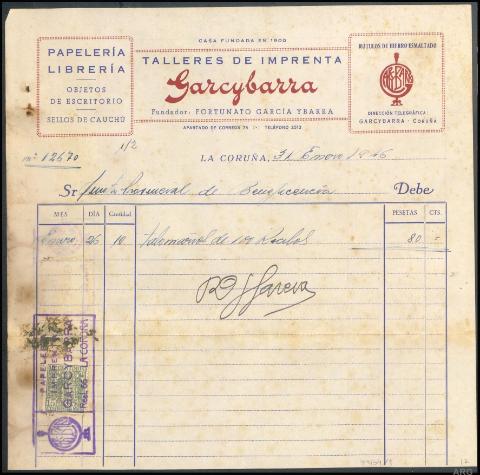 CASA FUNDADA EN 1900
PAPELERÍA
LIBRERÍA
OBJETOS
DE ESCRITORIO
SELLOS DE CAUCHÚ
TALLERES DE IMPRENTA
Garcybarra
Fundador: FORTUNATO GARCÍA YBARRA
APARTADO DE CORREOS 74 TELÉFONO 2212
RÓTULOS DE HIERRO ESMALTADO
DIRECCIÓN TELEGRÁFICA:
GARCYBARRA - CORUÑA
1/2
nº 12670
LA CORUÑA, 31 Enero 1946
Sr Junta Provincial de Beneficencia Debe
MES DÍA Cantidad PESETAS CTS.
Enero 26 10 Talonarios de 100 Recibos 80 =
García
PAPELERÍA
IMPRENTA
GARCYBARRA
REAL 66 - LA CORUÑA
ARG